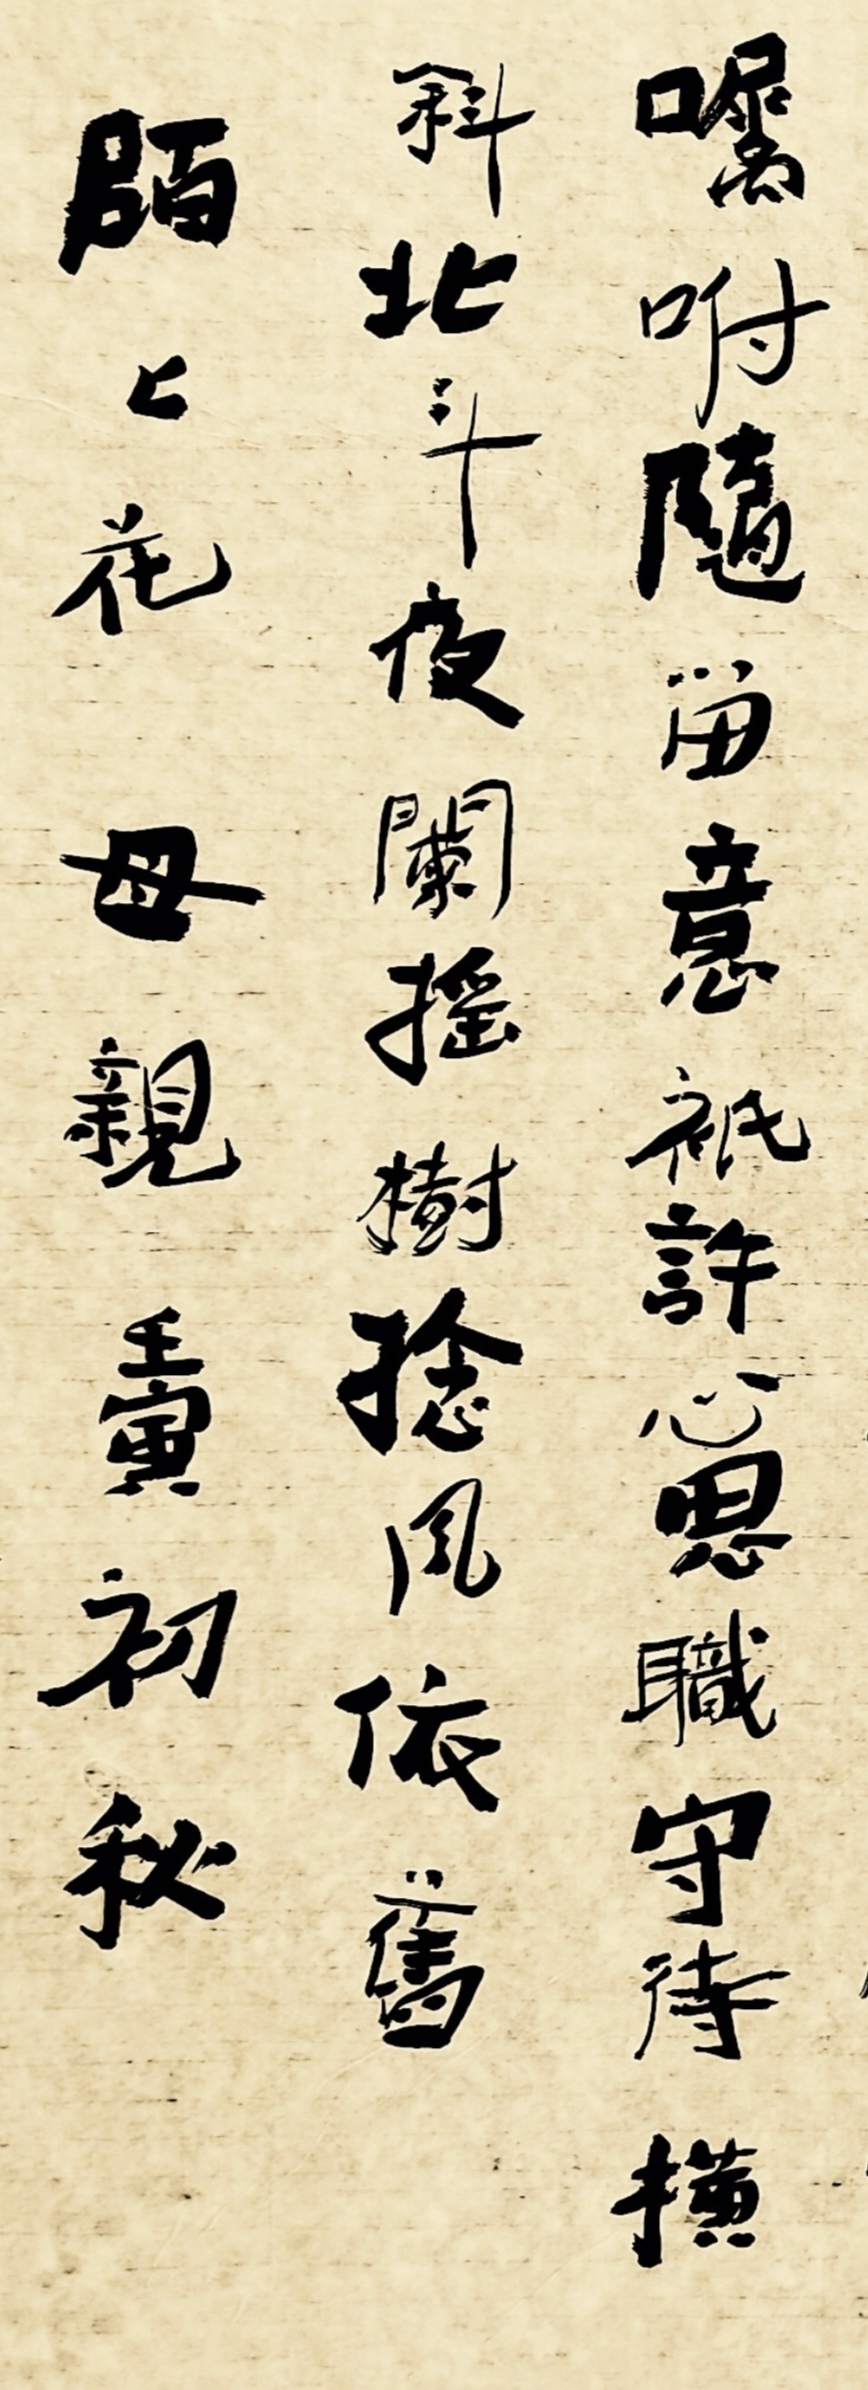 囑咐隨留意祇許心思職守待横
斜北斗夜闌摇樹捻風依舊
陌上花 母親 壬寅初秋